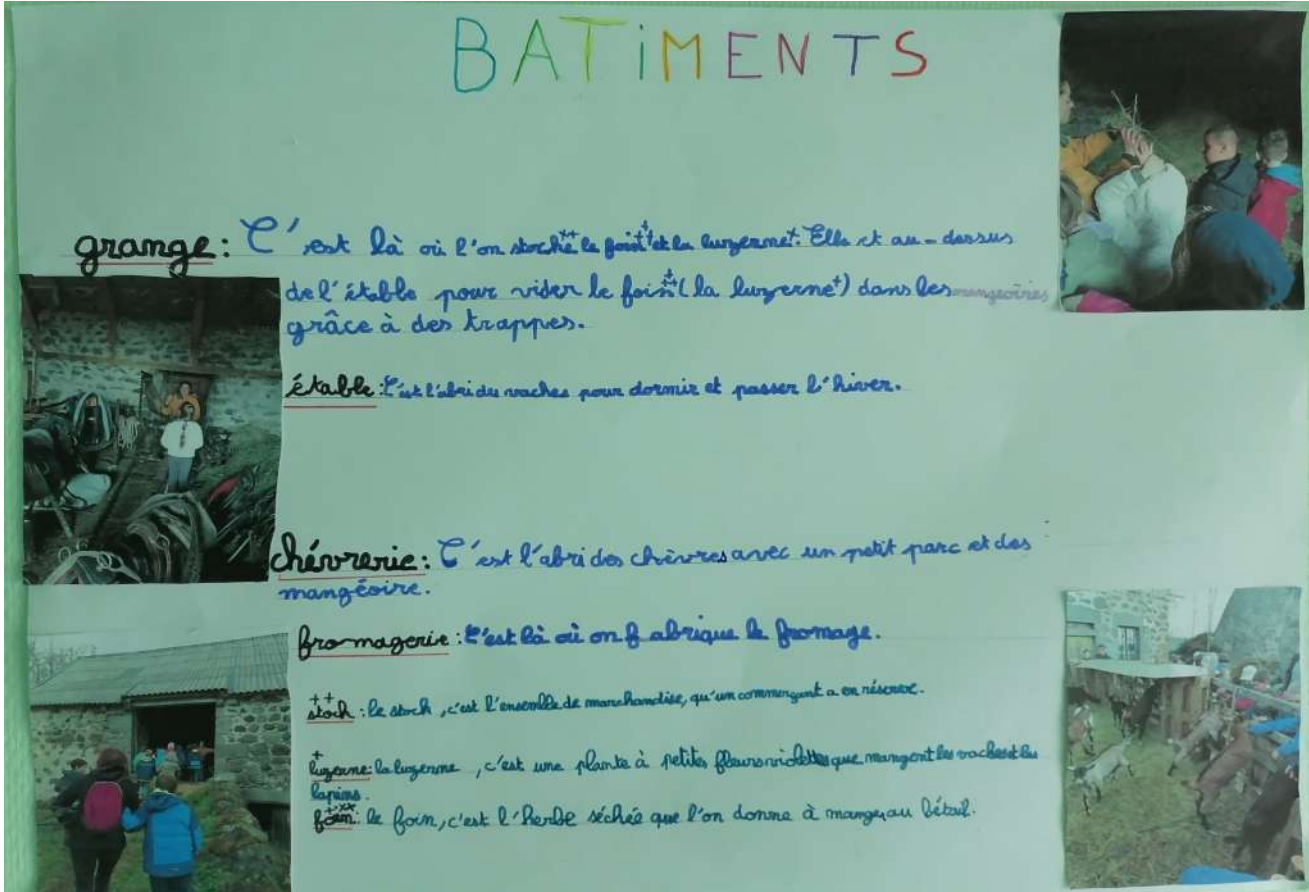 BATiMENTS
grange: C'est là où l'on stocke++ le foin+++ et la luzerne+. Elle et au-dessus
de l'étable pour vider le foin+++ (la luzerne+) dans les mangeoires
grâce à des trappes.
étable: C'est l'abri du vaches pour dormir et passer l'hiver.
chévrerie: C'est l'abri des chèvres avec un petit parc et des
mangéoire.
fromagerie: C'est là où on fabrique le fromage.
++stock: le stock, c'est l'ensemble de marchandise, qu'un commerçant a en réserve.
+luzerne: la luzerne, c'est une plante à petites fleurs violettes que mangent les vaches et les
lapins.
+++foin: le foin, c'est l'herbe séchée que l'on donne à manger au bétail.